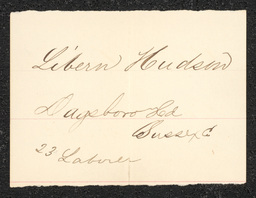 Libern Hudson
Dagsboro Hd
Sussex C
23 Laborer